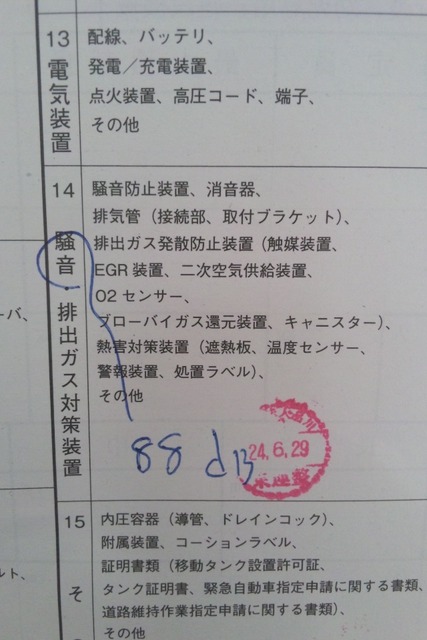 13
電気装置
配線、バッテリ、
発電／充電装置、
点火装置、高圧コード、端子、
その他
14
騒音・排出ガス対策装置
騒音防止装置、消音器、
排気管（接続部、取付ブラケット）、
排出ガス発散防止装置（触媒装置、
EGR装置、二次空気供給装置、
O2センサー、
ブローバイガス還元装置、キャニスター）、
熱害対策装置（遮熱板、温度センサー、
警報装置、処置ラベル）、
その他
88 dB
24.6.29
15
そ
内圧容器（導管、ドレインコック）、
附属装置、コーションラベル、
証明書類（移動タンク設置許可証、
タンク証明書、緊急自動車指定申請に関する書類、
道路維持作業指定申請に関する書類）、
その他
ーバ、
ルト、